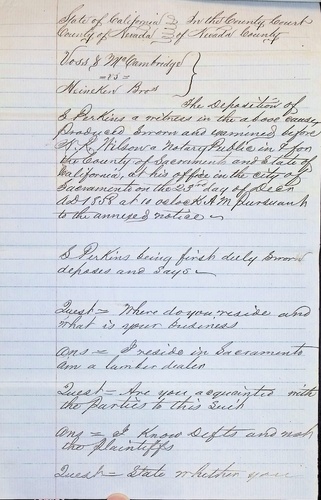 State of California } ss In the County Court
County of Nevada of Nevada County
Voss & McCambridge
- vs -
Heineken Bros
The Deposition of
S Perkins a witness in the above cause
produced Sworn and examined before
N. A. Wilson a Notary Public in & for
the County of Sacramento and State of
California, at his office in the city of
Sacramento on the 23rd day of Decr
AD 1858 at 10 oclock A M pursuant
to the annexed notice
S Perkins being first duly Sworn
deposes and Says
Quest = Where do you reside and
what is your business
Ans = I reside in Sacramento
am a lumber dealer
Quest = Are you acquainted with
the Parties to this Suit
Ans = I Know Defts and not
the Plaintiffs
Quest = State whether you